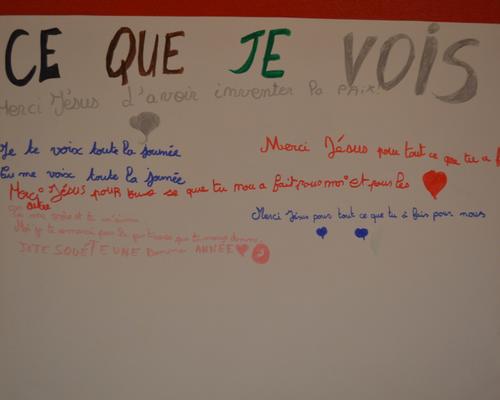 CE QUE JE VOIS
Merci Jésus d'avoir inventer la paix.
Je te voix toute la journée
tu me voix toute la journée
Merci Jésus pour tout ce que tu a
Merci Jésus pour tous se que tu nou a fait pous moi et pour les
autre
Merci Jésus pour tout ce que tu a fais pour nous
JE TE SOUÉTE UNE bonne ANNÉE